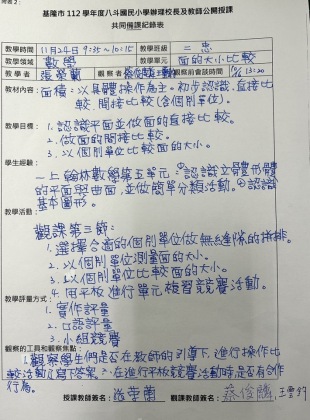 附表2:
基隆市 112 學年度八斗國民小學辦理校長及教師公開授課
共同備課紀錄表
教學時間 11月24日 9:35~10:15 教學班級 二忠
教學領域 數學 教學單元 面的大小比較
教學者 張榮蘭 觀察者 蔡俊麟 觀察前會談時間 13:20
教材內容: 面積:以具體操作為主。初步認識、直接比
較、間接比較(含個別單位)。
教學目標: 1. 認識平面並做面的直接比較。
2. 做面的間接比較。
3. 以個別單位比較面的大小。
學生經驗:
一上翰林數學第五單元:①認識立體形體
的平面與曲面,並做簡單分類活動。②認識
基本圖形。
教學活動:
觀課第三節:
1. 選擇合適的個別單位做無縫隙的拼排。
2. 以個別單位測量面的大小。
3. 以個別單位比較面的大小。
4. 用平板進行單元複習競賽活動。
教學評量方式:
1. 實作評量
2. 口語評量
3. 小組競賽
觀察的工具和觀察焦點:
1. 觀察學生們是否在教師的引導下,進行操作比
較活動/寫下答案。2. 在進行平板競賽活動時,是否有合作
行為。
授課教師簽名: 張榮蘭 觀課教師簽名: 蔡俊麟、